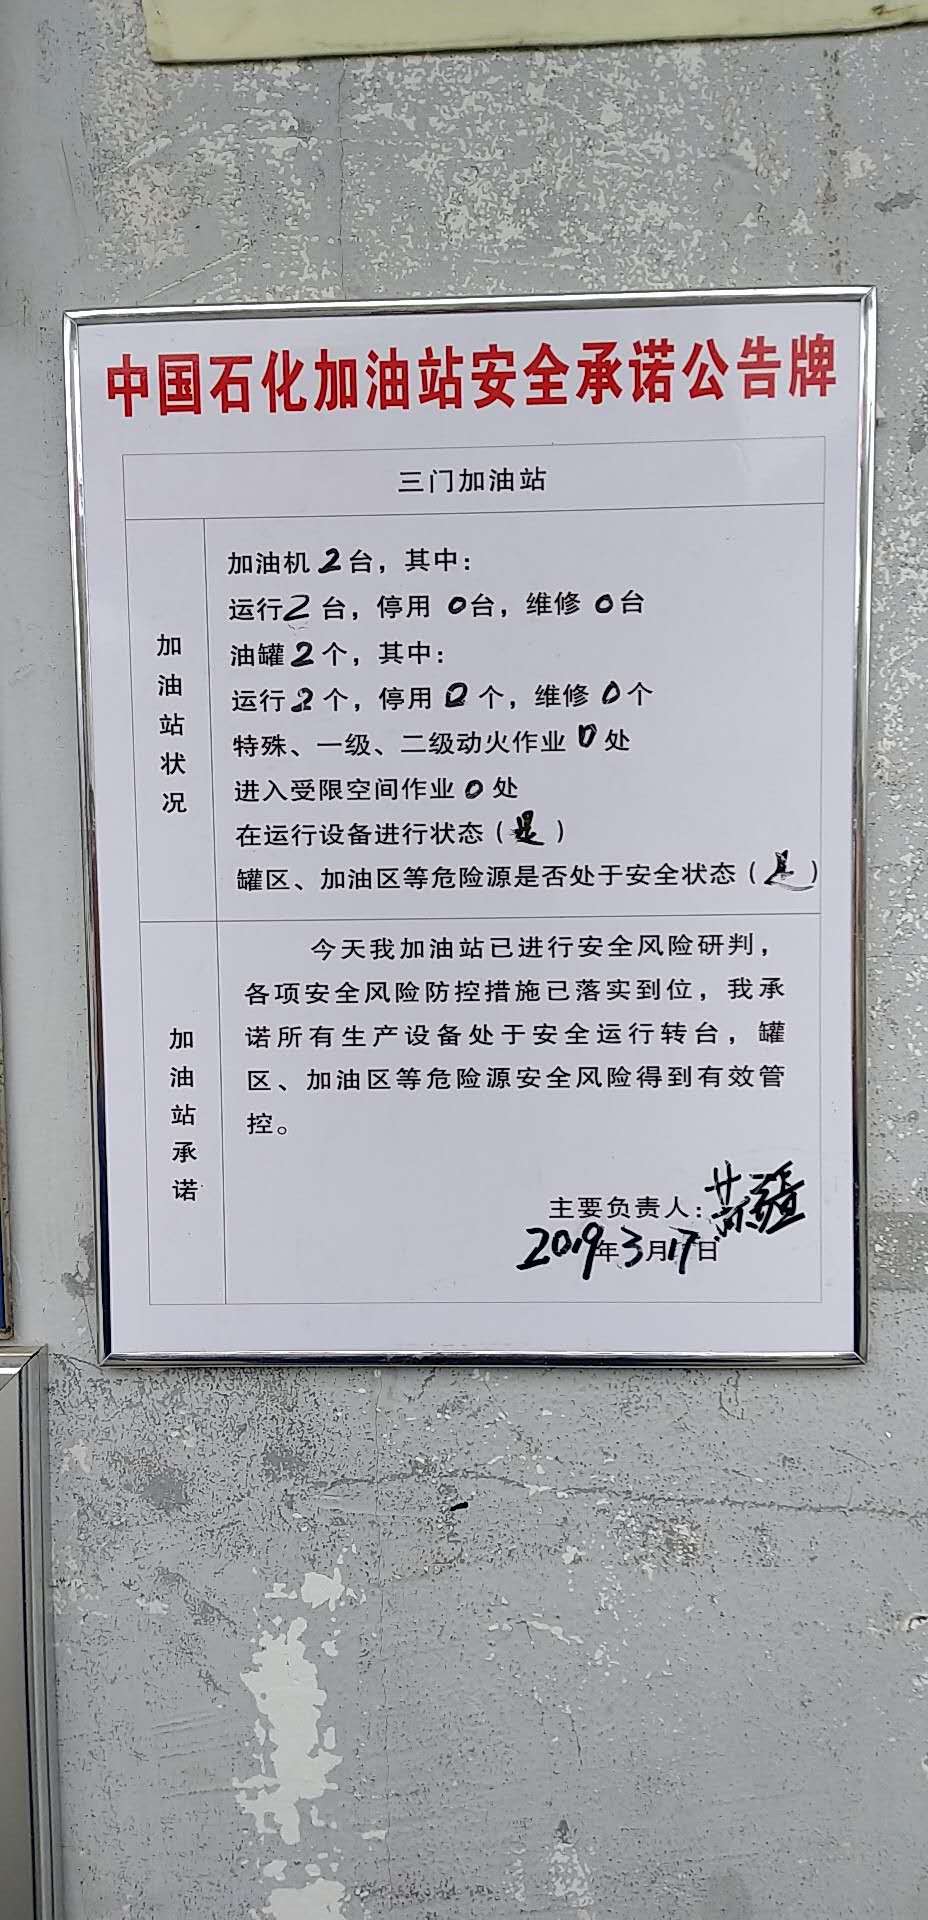 中国石化加油站安全承诺公告牌
三门加油站
加油站状况
加油机 2 台，其中：
运行 2 台，停用 0 台，维修 0 台
油罐 2 个，其中：
运行 2 个，停用 0 个，维修 0 个
特殊、一级、二级动火作业 0 处
进入受限空间作业 0 处
在运行设备进行状态（是）
罐区、加油区等危险源是否处于安全状态（是）
加油站承诺
今天我加油站已进行安全风险研判，
各项安全风险防控措施已落实到位，我承
诺所有生产设备处于安全运行转台，罐
区、加油区等危险源安全风险得到有效管
控。
主要负责人：
2019年3月17日